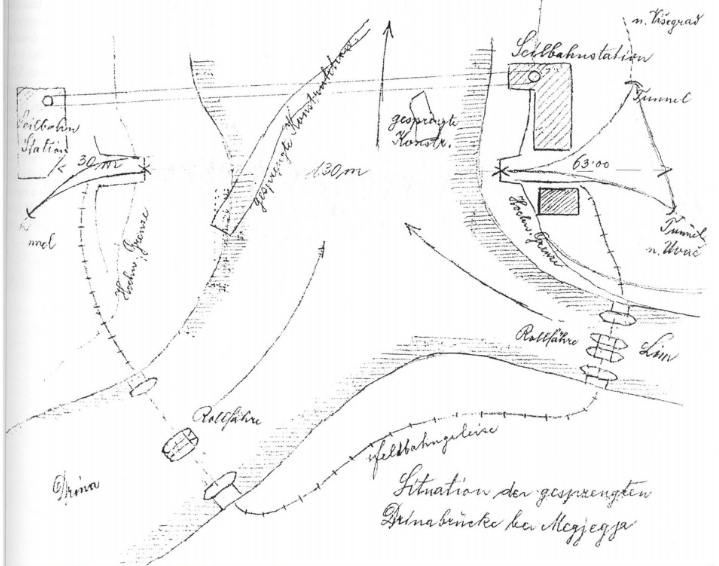 n. Višegrad
Seilbahnstation
Tunnel
Seilbahn
Station
30 m
gesprengte Konstruktion
130 m
gesprengte
Konstr.
63·00
Hochw. Grenze
Hochw. Grenze
Tunnel
n. Uvac
Rollfähre
Lim
Rollfähre
Feldbahngeleise
Drina
Situation der gesprengten
Drinabrücke bei Megjegja